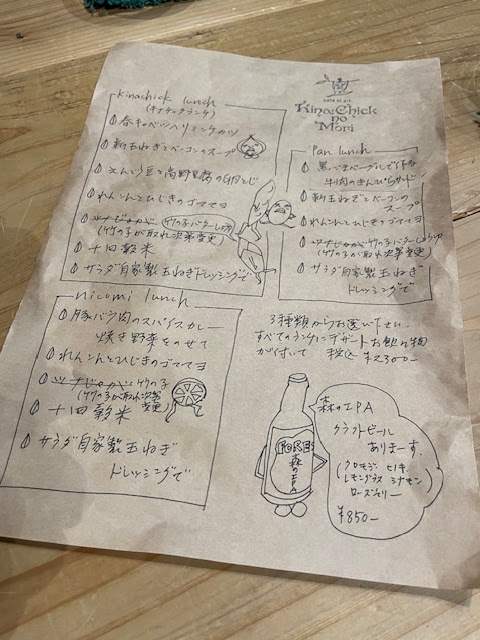 Kinachick lunch
(キナチックランチ)
春キャベツ入りミンチカツ
新玉ねぎとベーコンのスープ
えんどう豆と高野豆腐の卵とじ
れんこんとひじきのゴママヨ
竹の子バターしょうゆ
(竹の子が取れ次第変更)
十四穀米
サラダ自家製玉ねぎドレッシングで
Kina Chick
no
Mori
Pan lunch
黒ごまベーグルで作る
牛肉のきんぴらサンド
新玉ねぎとベーコンの
スープ
れんこんとひじきのゴママヨ
竹の子バターしょうゆ
(竹の子が取れ次第変更)
サラダ自家製玉ねぎ
ドレッシングで
nicomi lunch
豚バラ肉のスパイスカレー
焼き野菜をのせて
れんこんとひじきのゴママヨ
竹の子
(竹の子が取れ次第変更)
十四穀米
サラダ自家製玉ねぎ
ドレッシングで
3種類からお選び下さい。
すべてのランチにデザートお飲み物
が付いて 税込 ¥2300-
森のIPA
森のIPA
クラフトビール
ありまーす。
(クロモジー ヒノキ
レモングラス シナモン
ローズマリー)
¥850-